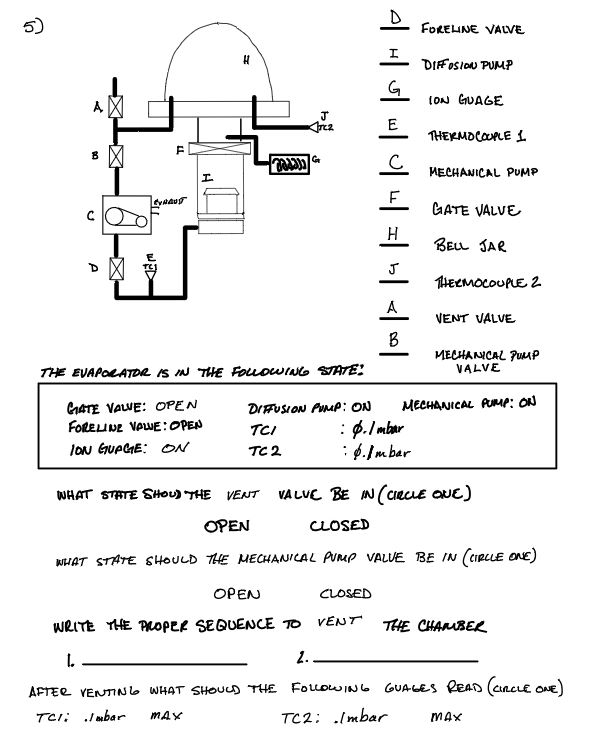 5)
H
A
J
TC2
B
F
G
I
C
EXHAUST
D
E
TC1
D FORELINE VALVE
I DIFFUSION PUMP
G ION GUAGE
E THERMOCOUPLE 1
C MECHANICAL PUMP
F GATE VALVE
H BELL JAR
J THERMOCOUPLE 2
A VENT VALVE
B MECHANICAL PUMP
VALVE
THE EVAPORATOR IS IN THE FOLLOWING STATE:
GATE VALVE: OPEN DIFFUSION PUMP: ON MECHANICAL PUMP: ON
FORELINE VALVE: OPEN TC1 : 0.1mbar
ION GUAGE: ON TC2 : 0.1mbar
WHAT STATE SHOUD THE VENT VALVE BE IN (CIRCLE ONE)
OPEN CLOSED
WHAT STATE SHOULD THE MECHANICAL PUMP VALVE BE IN (CIRCLE ONE)
OPEN CLOSED
WRITE THE PROPER SEQUENCE TO VENT THE CHAMBER
1. 2.
AFTER VENTING WHAT SHOULD THE FOLLOWING GUAGES READ (CIRCLE ONE)
TC1: .1mbar MAX TC2: .1mbar MAX